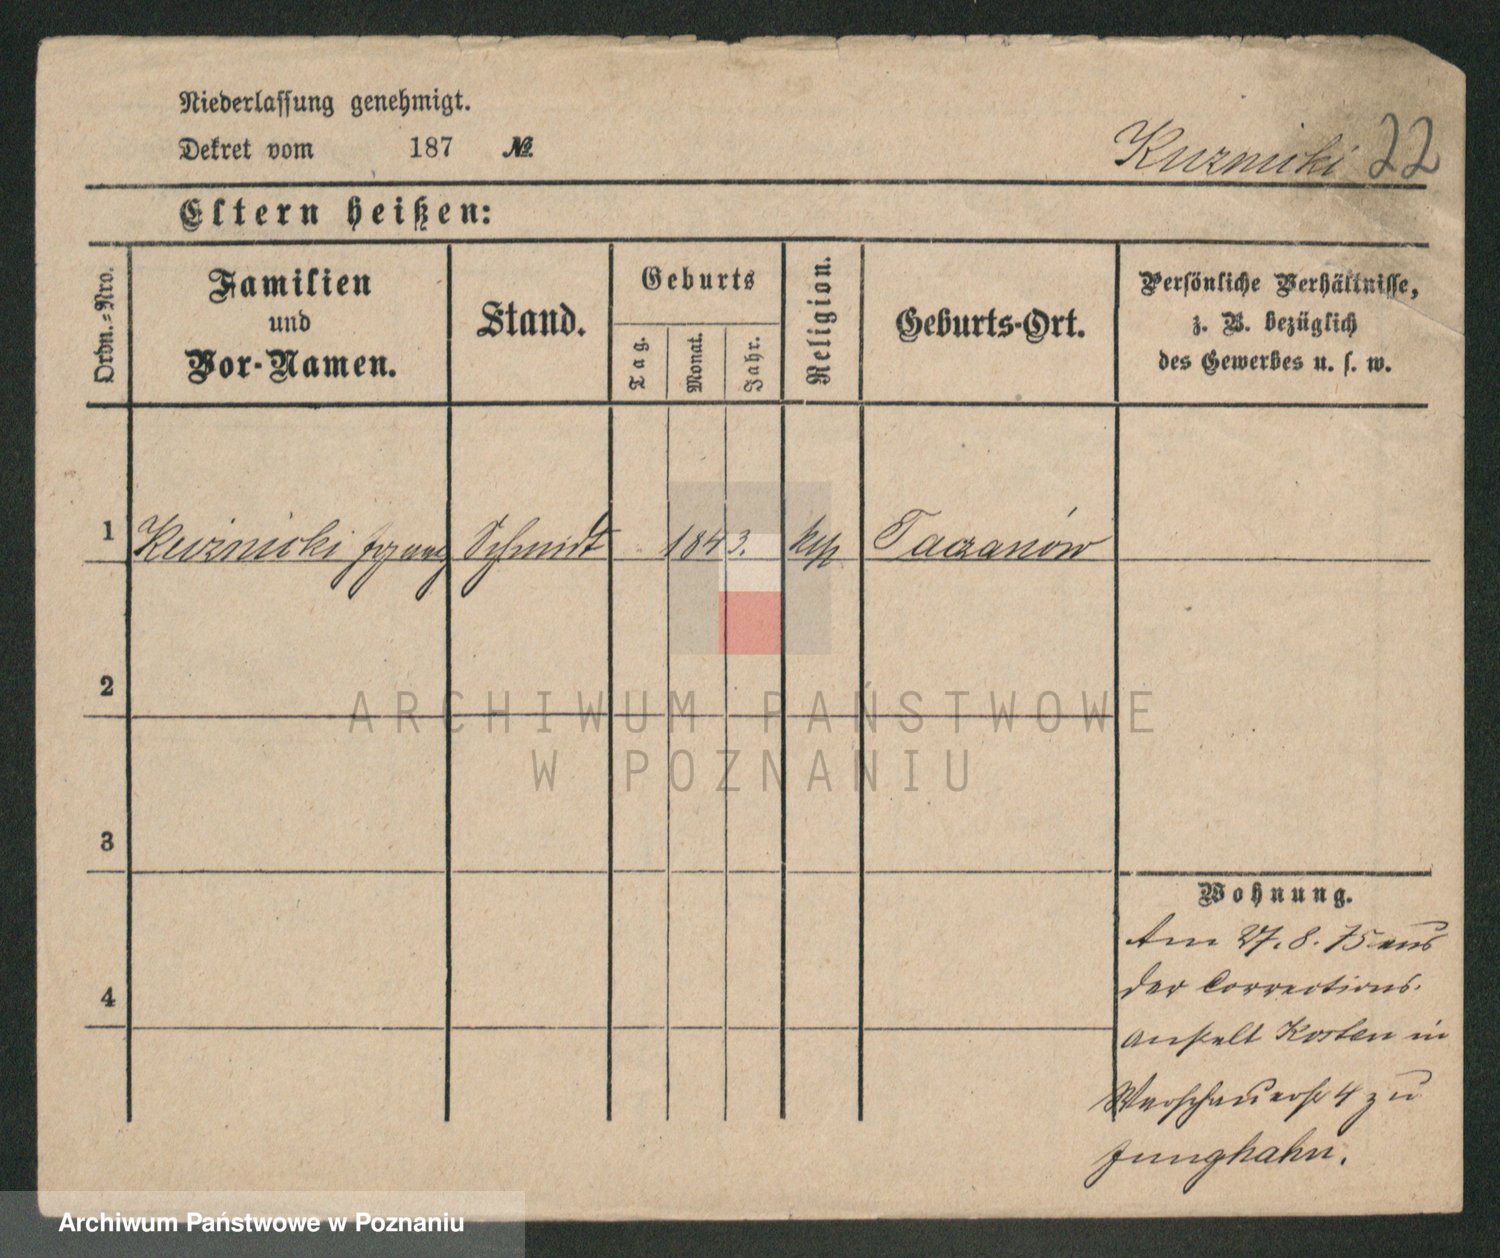 Niederlassung genehmigt.
Dekret vom 187 №
Kuznicki 22
Eltern heißen:
Ordn.=Nro.
Familien
und
Vor-Namen.
Stand.
Geburts
Tag.
Monat.
Jahr.
Religion.
Geburts-Ort.
Persönliche Verhältnisse,
z. B. bezüglich
des Gewerbes u. s. w.
1 Kuźnicki Franz Schmidt 1843. kath Taczanów
2
3
4
Wohnung.
Am 27. 8. 75 aus
der Corrections-
anstalt Kosten in
Warschauerstr 4 zu
Junghahn.
ARCHIWUM PAŃSTWOWE
W POZNANIU
Archiwum Państwowe w Poznaniu